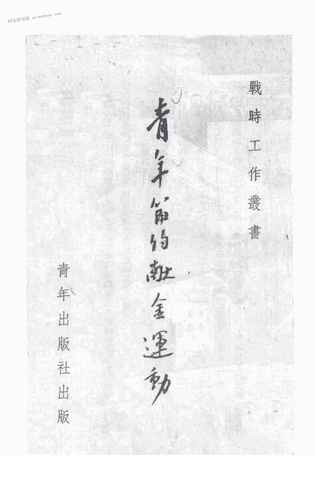 戰時工作叢書
青年節約獻金運動
青年出版社出版